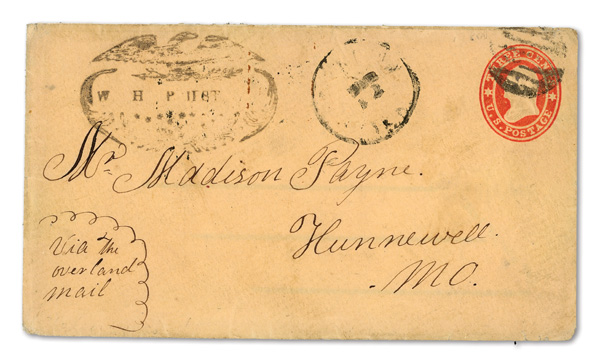 THREE CENTS
U.S. POSTAGE
Mr. Maddison Payne.
Hunnewell.
Mo.
Via the
overland
mail